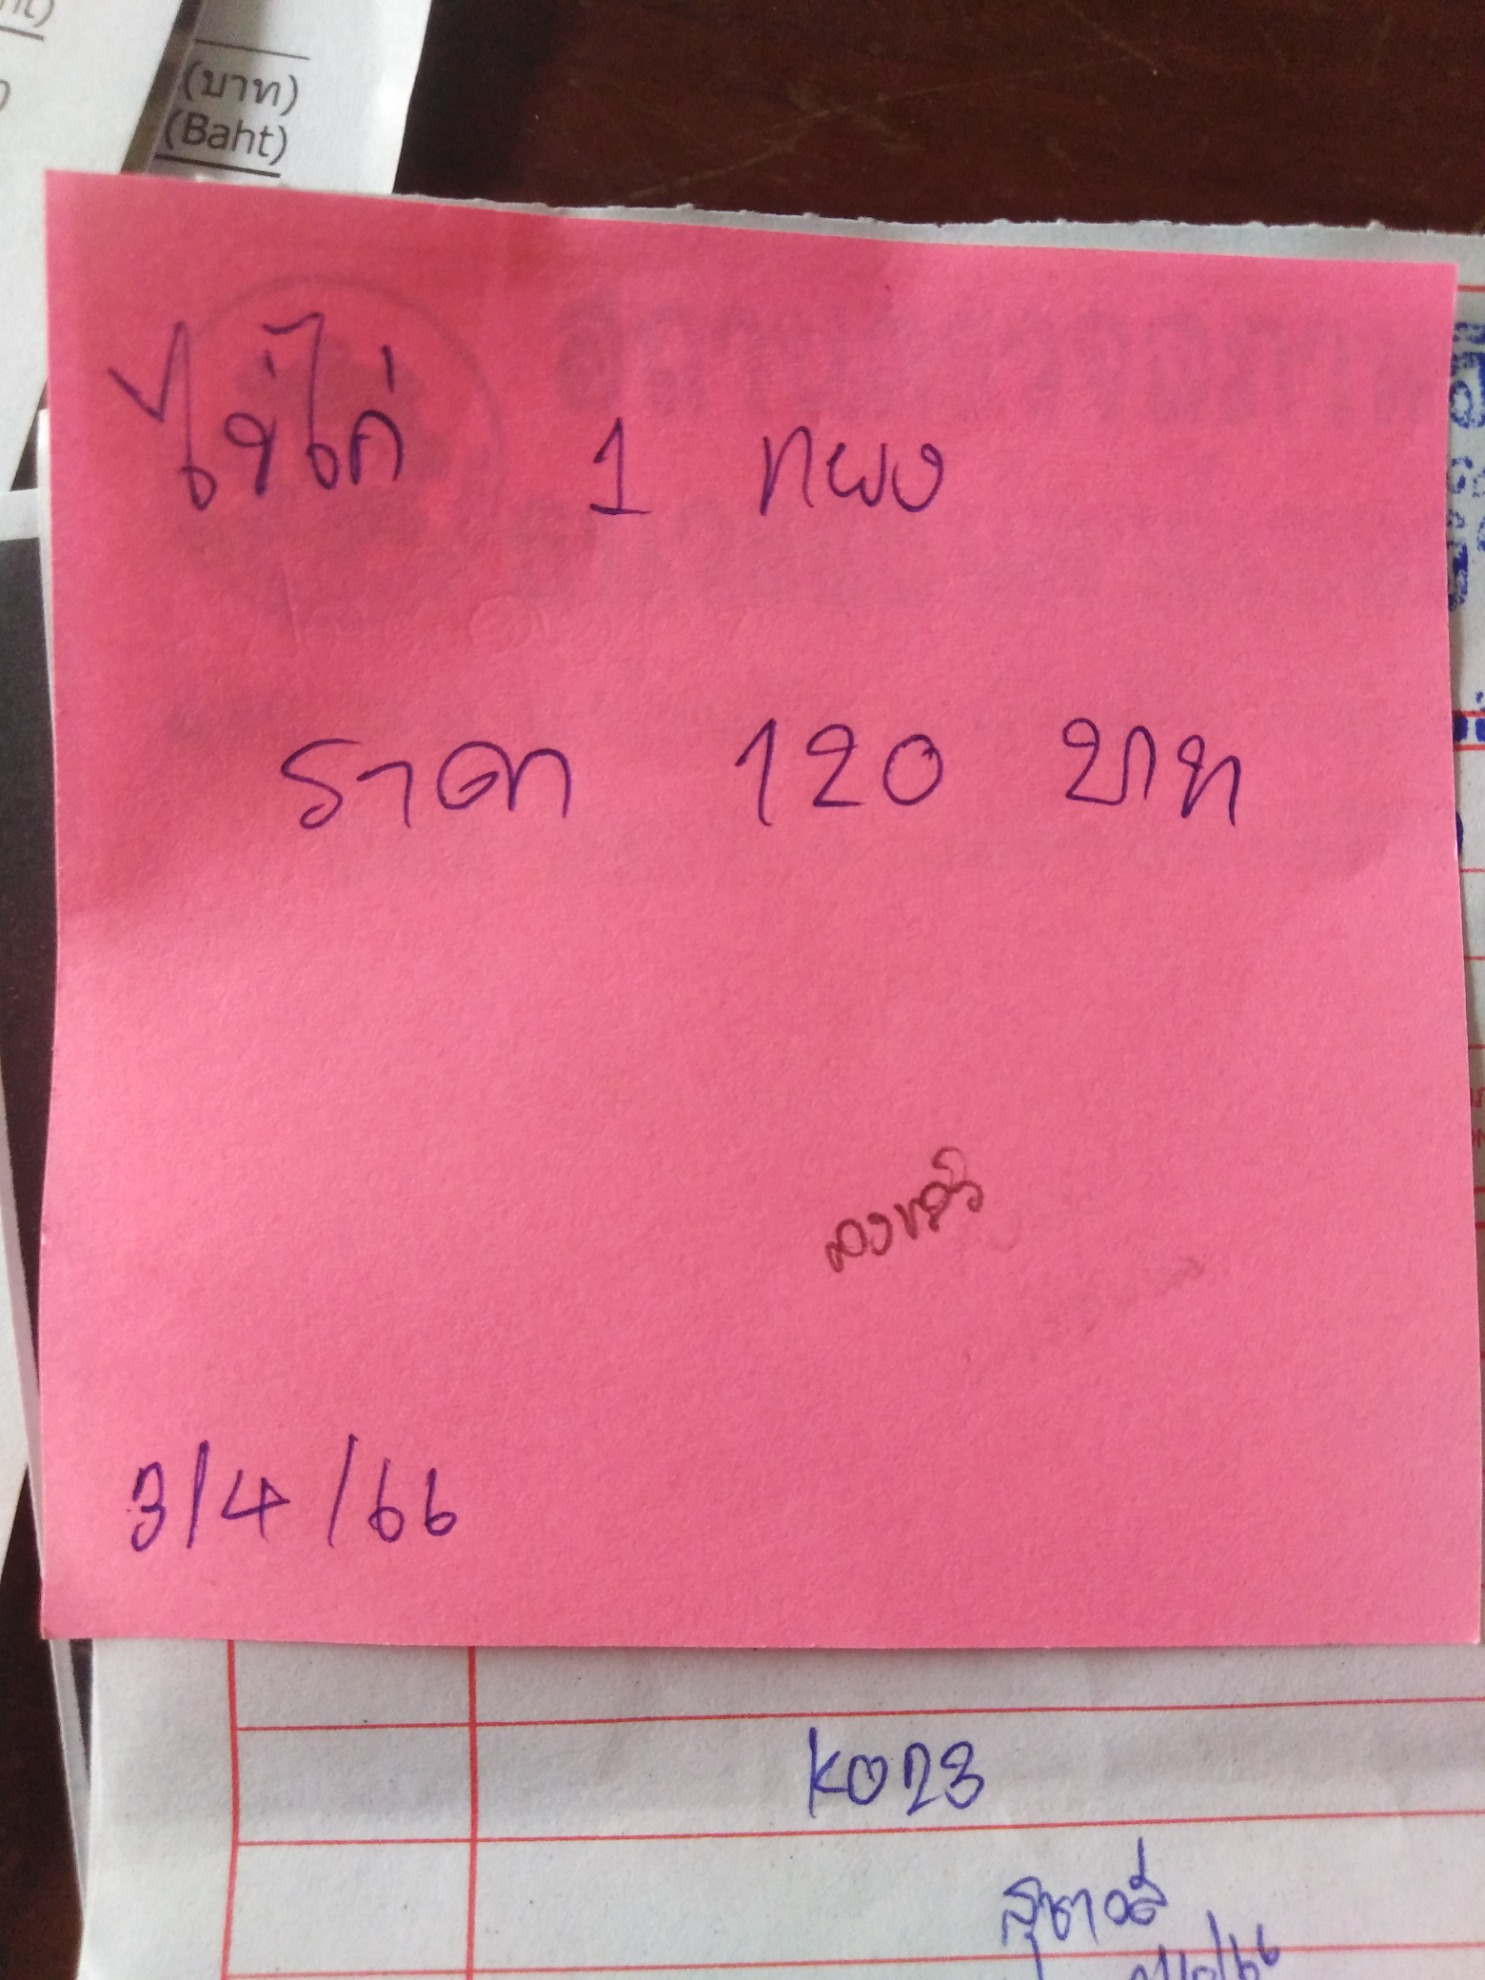 (บาท)
(Baht)
ไข่ไก่ 1 แผง
ราคา 120 บาท
ลงแล้ว
3/4/66
K023